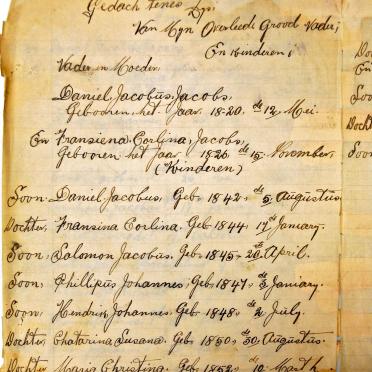 Gedach tenes Dys
Van Myn Overleede Grood Vader,
En Kinderen,
Vader en Moeder
Daniel Jacobus, Jacobs,
Gebooren het Jaar 18-20 de 12, Mei
En Fransiena Corlina, Jacobs,
Gebooren het Jaar 1826 de 15 November,
(Kinderen)
Soon, Daniel Jacobus, Geb, 1842, de 5, Augustus
Dochter, Fransina Corlina, Geb, 1844, 17 de January.
Soon, Salomon Jacobus, Geb, 1845, 20 de April.
Soon, Phillipus Johannes, Geb, 1847, de 3 January.
Soon, Hendrik Johannes, Geb, 1848, de 2 July.
Dochter, Chatarina Susana, Geb 1850, de 30, Augustus.
Dochter Maria Christina, Geb, 1852, de 10, March
Doch
En
Soon
Dochte
Soon